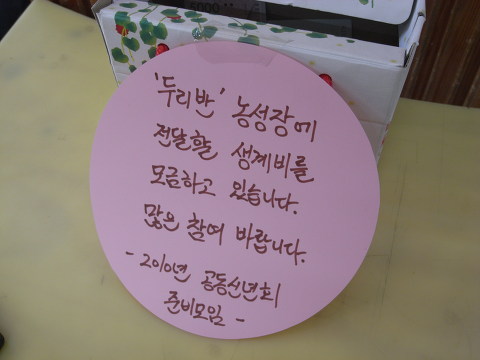 '두리반' 농성장에
전달할 생계비를
모금하고 있습니다.
많은 참여 바랍니다.
- 2010년 공동신년회
준비모임 -